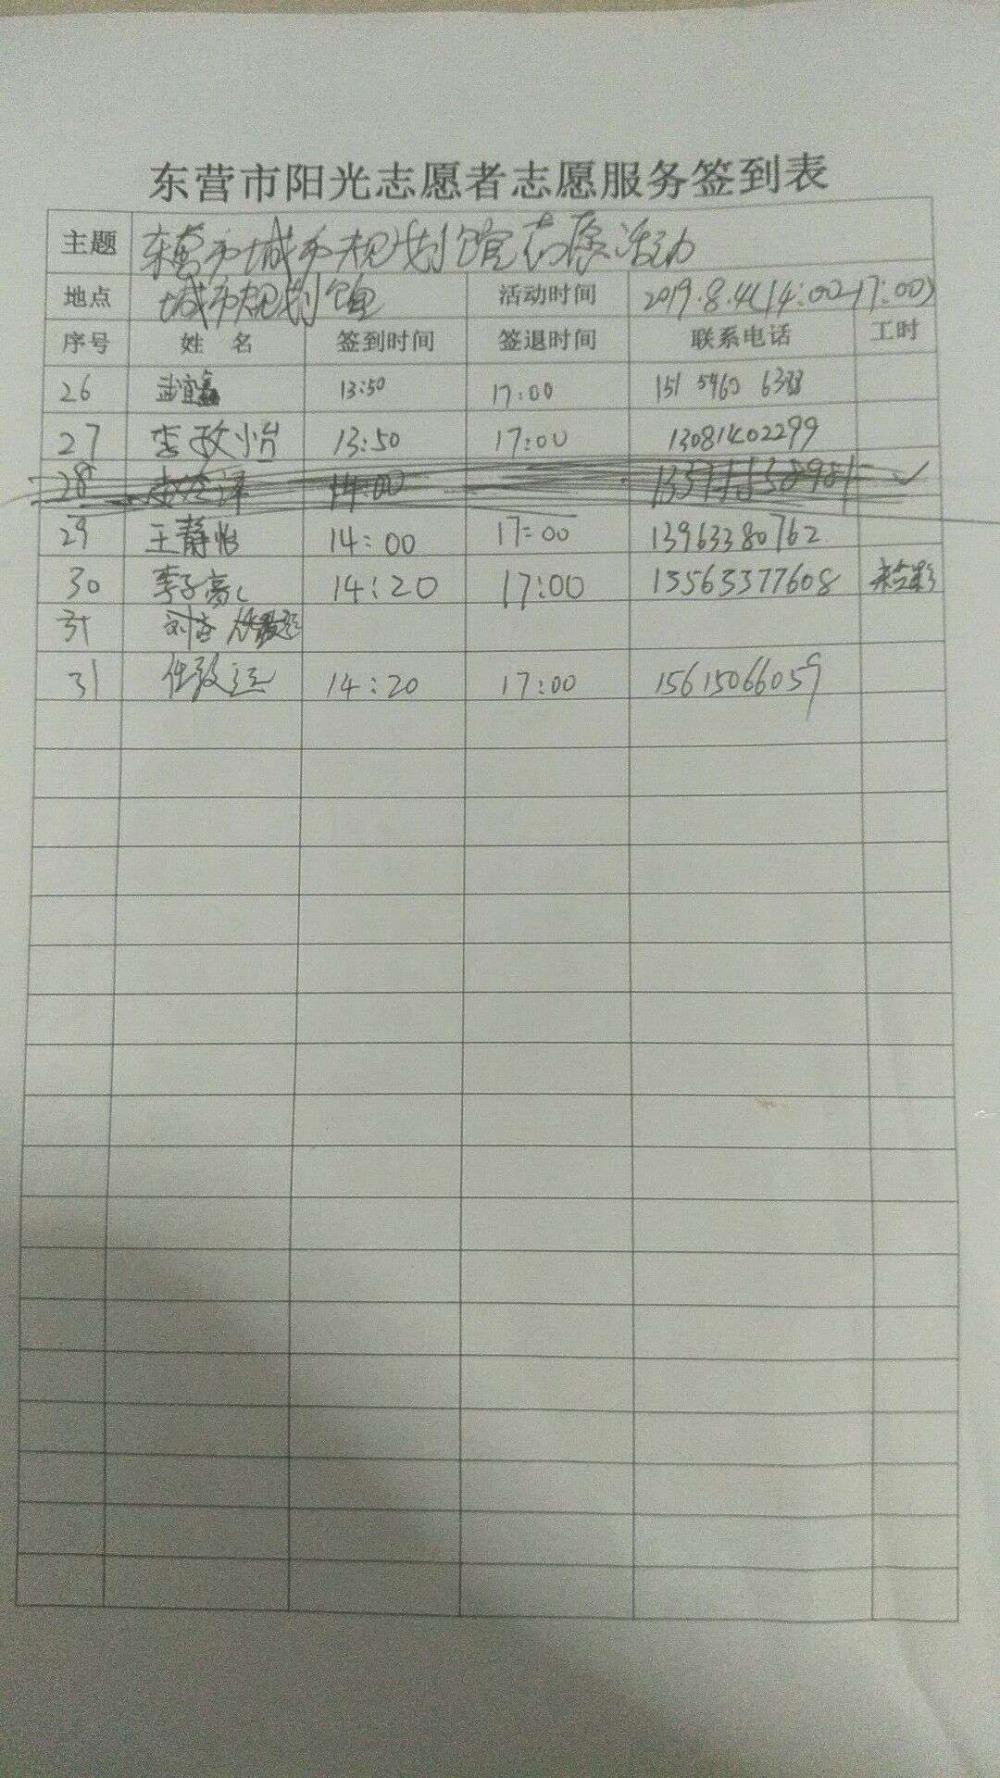 东营市阳光志愿者志愿服务签到表
主题 东营市城市规划馆志愿活动
地点 城市规划馆 活动时间 2019.8.4(14:00-17:00)
序号 姓名 签到时间 签退时间 联系电话 工时
26 武宜鑫 13:50 17:00 151 5460
27 李政怡 13:50 17:00 13081402299
28 14:00
29 王静怡 14:00 17:00 13963380762
30 李子豪 14:20 17:00 13563377608
31
31 任致远 14:20 17:00 15615066059